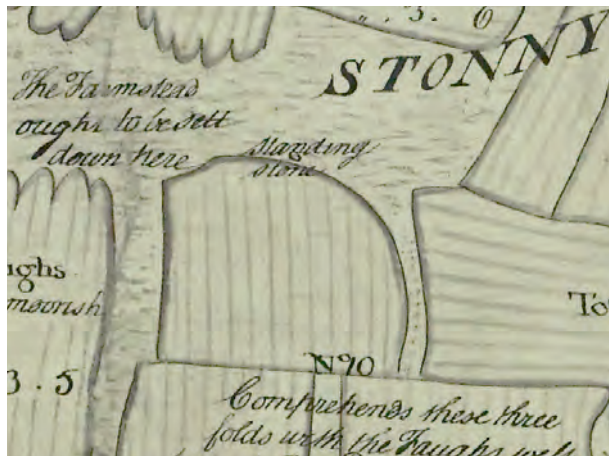 . 3. 6
STONNY
The Farmstead
ought to be sett
down here
Standing
stone
ughs
moorish
To
3 . 5
No 90
Comprehends these three
folds with the Faughs well